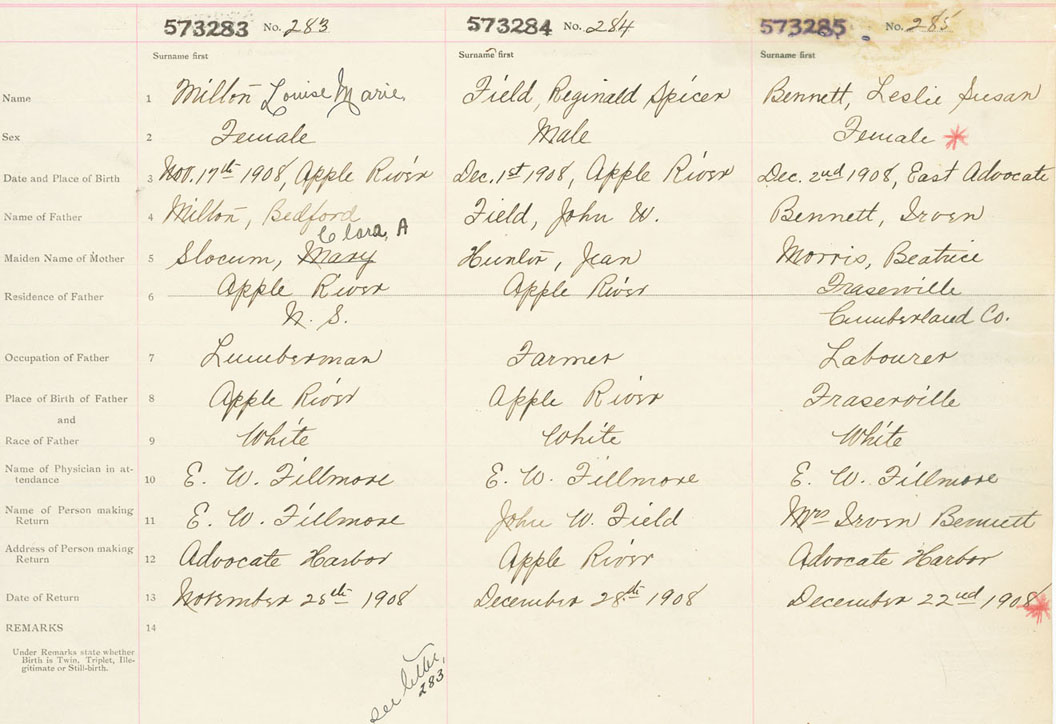 573283 No. 283 573284 No. 284 573285 No. 285
Surname first Surname first Surname first
Name 1 Milton Louise Marie Field, Reginald Spicer Bennett, Leslie Susan
Sex 2 Female Male Female
Date and Place of Birth 3 Nov. 17th 1908, Apple River Dec. 1st 1908, Apple River Dec. 2nd 1908, East Advocate
Name of Father 4 Milton, Bedford Field, John W. Bennett, Irven
Clara, A
Maiden Name of Mother 5 Slocum, Mary Jean Morris, Beatrice
Residence of Father 6 Apple River Apple River Fraserville
N. S. Cumberland Co.
Occupation of Father 7 Lumberman Farmer Labourer
Place of Birth of Father 8 Apple River Apple River Fraserville
and
Race of Father 9 White White White
Name of Physician in at-
tendance 10 E. W. Fillmore E. W. Fillmore E. W. Fillmore
Name of Person making
Return 11 E. W. Fillmore John W. Field Mrs Irven Bennett
Address of Person making
Return 12 Advocate Harbor Apple River Advocate Harbor
Date of Return 13 November 25th 1908 December 28th 1908 December 22nd 1908
REMARKS 14
Under Remarks state whether
Birth is Twin, Triplet, Ille-
gitimate or Still-birth.
see letter
283